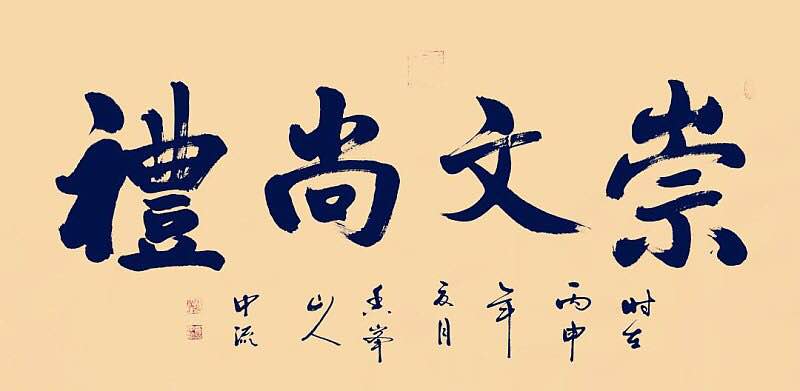 崇文尚禮
时在丙申年夏月香峯山人中流